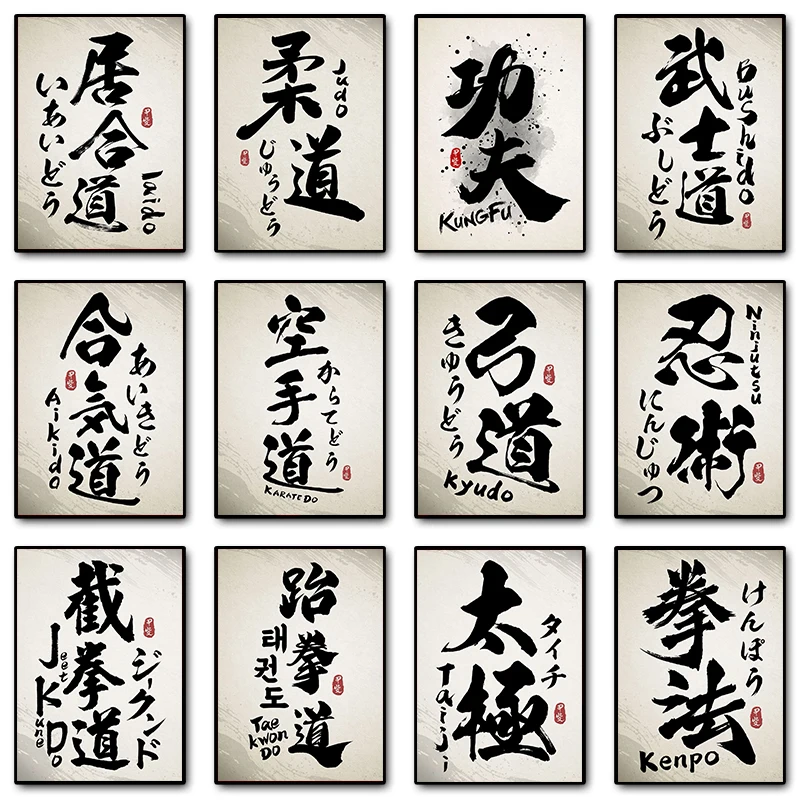 居合道
いあいどう
Iaido
柔道
じゅうどう
Judo
功夫
KUNGFU
武士道
ぶしどう
Bushido
合気道
あいきどう
Aikido
空手道
からてどう
KARATE DO
弓道
きゅうどう
kyudo
忍術
にんじゅつ
Ninjutsu
截拳道
ジークンド
Jeet Kune Do
跆拳道
태권도
Tae kwon DO
太極
タイチ
Taiji
拳法
けんぽう
Kenpo